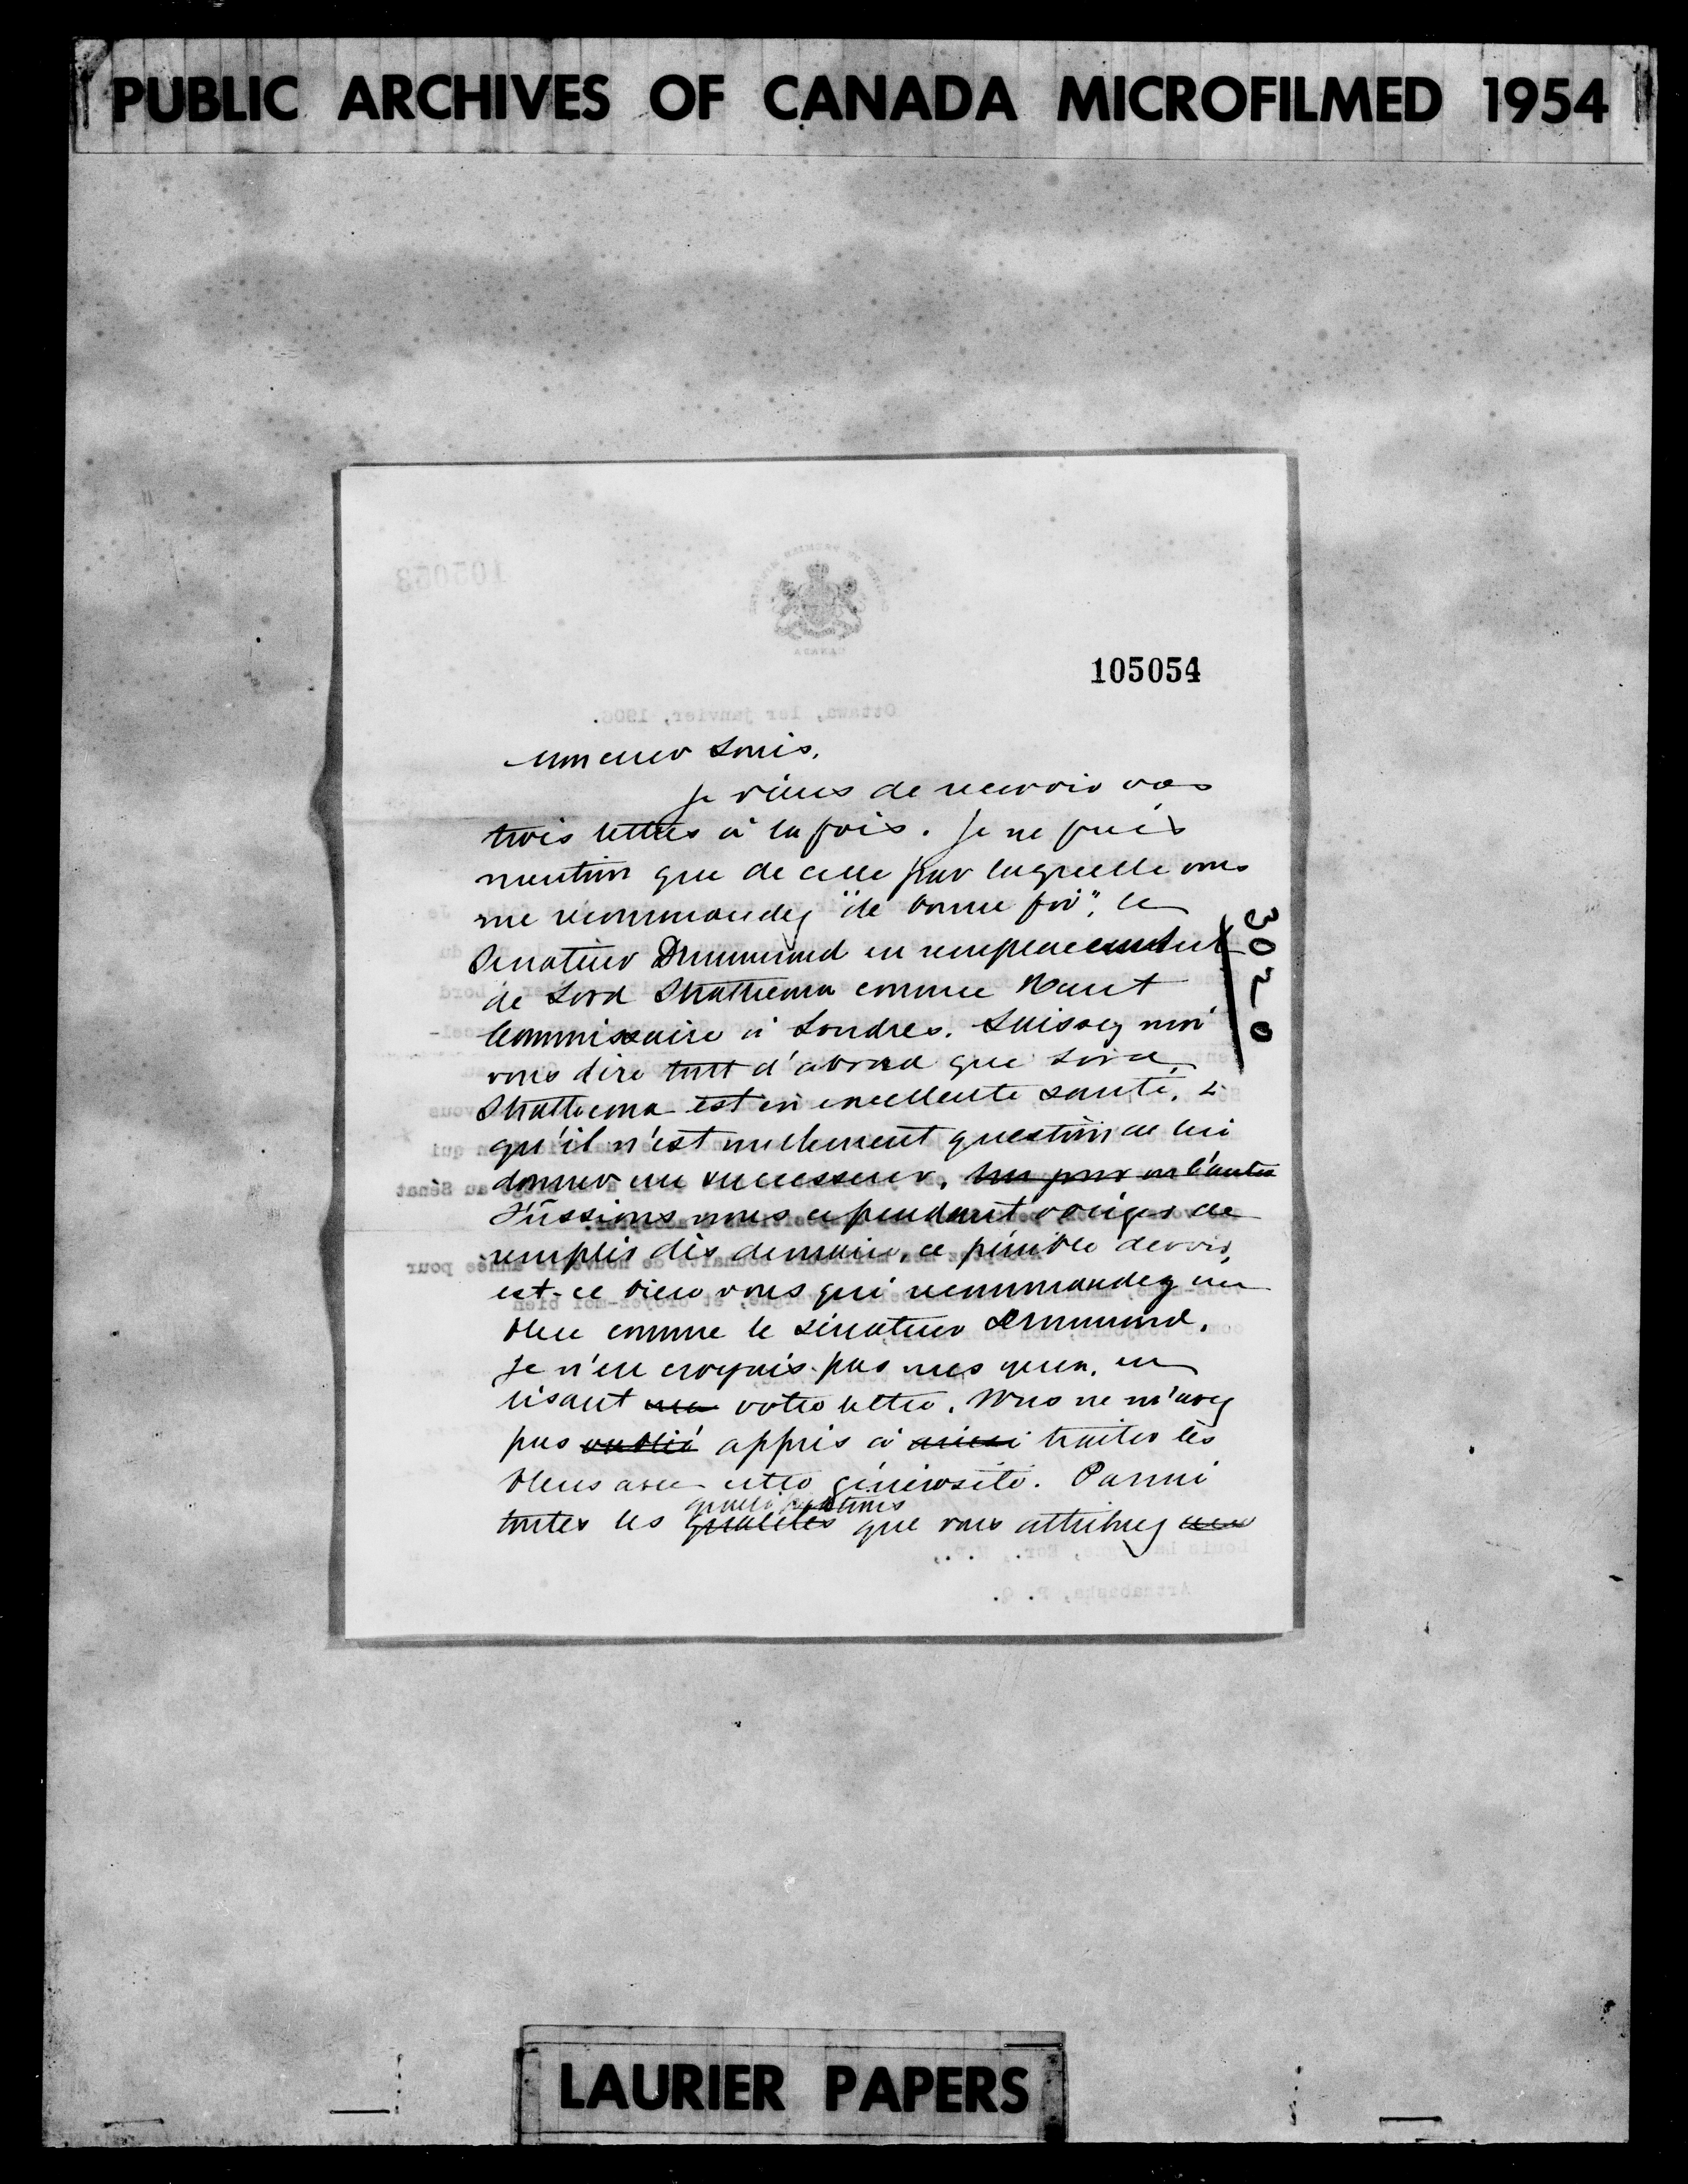 PUBLIC ARCHIVES OF CANADA MICROFILMED 1954
105054
Mon cher Louis,
Je viens de recevoir vos
trois lettres à la fois. Je ne fais
mention que de celle par laquelle vous
me recommandez "de bonne foi", le
Senateur Drummond en remplacement
de Lord Strathcona comme Haut
Commissaire à Londres. Laissez moi
vous dire tout d'abord que Lord
Strathcona est en excellente santé, &
qu'il n'est nullement question de lui
donner un successeur. Un jour ou l'autre
Fussions nous cependant obligés de
remplir dès demain, ce pénible devoir,
est-ce bien vous qui recommandez un
bleu comme le sénateur Drummond.
Je n'en croyais pas mes yeux, en
lisant votre lettre. Vous ne m'avez
pas oublié appris à ainsi traiter les
bleus avec cette générosité. Parmi
toutes les qualités que vous attribuez
3020
LAURIER PAPERS